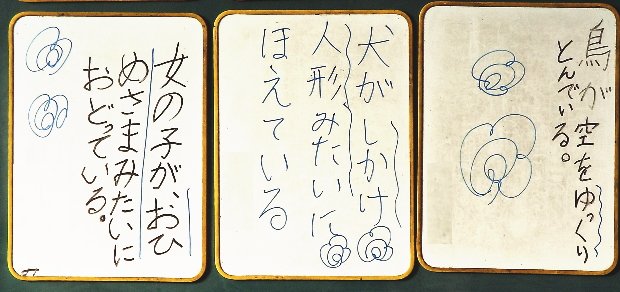 鳥が空をゆっくり
とんでいる。
犬がしかけ
人形みたいに
ほえている
女の子が、おひ
めさまみたいに
おどっている。